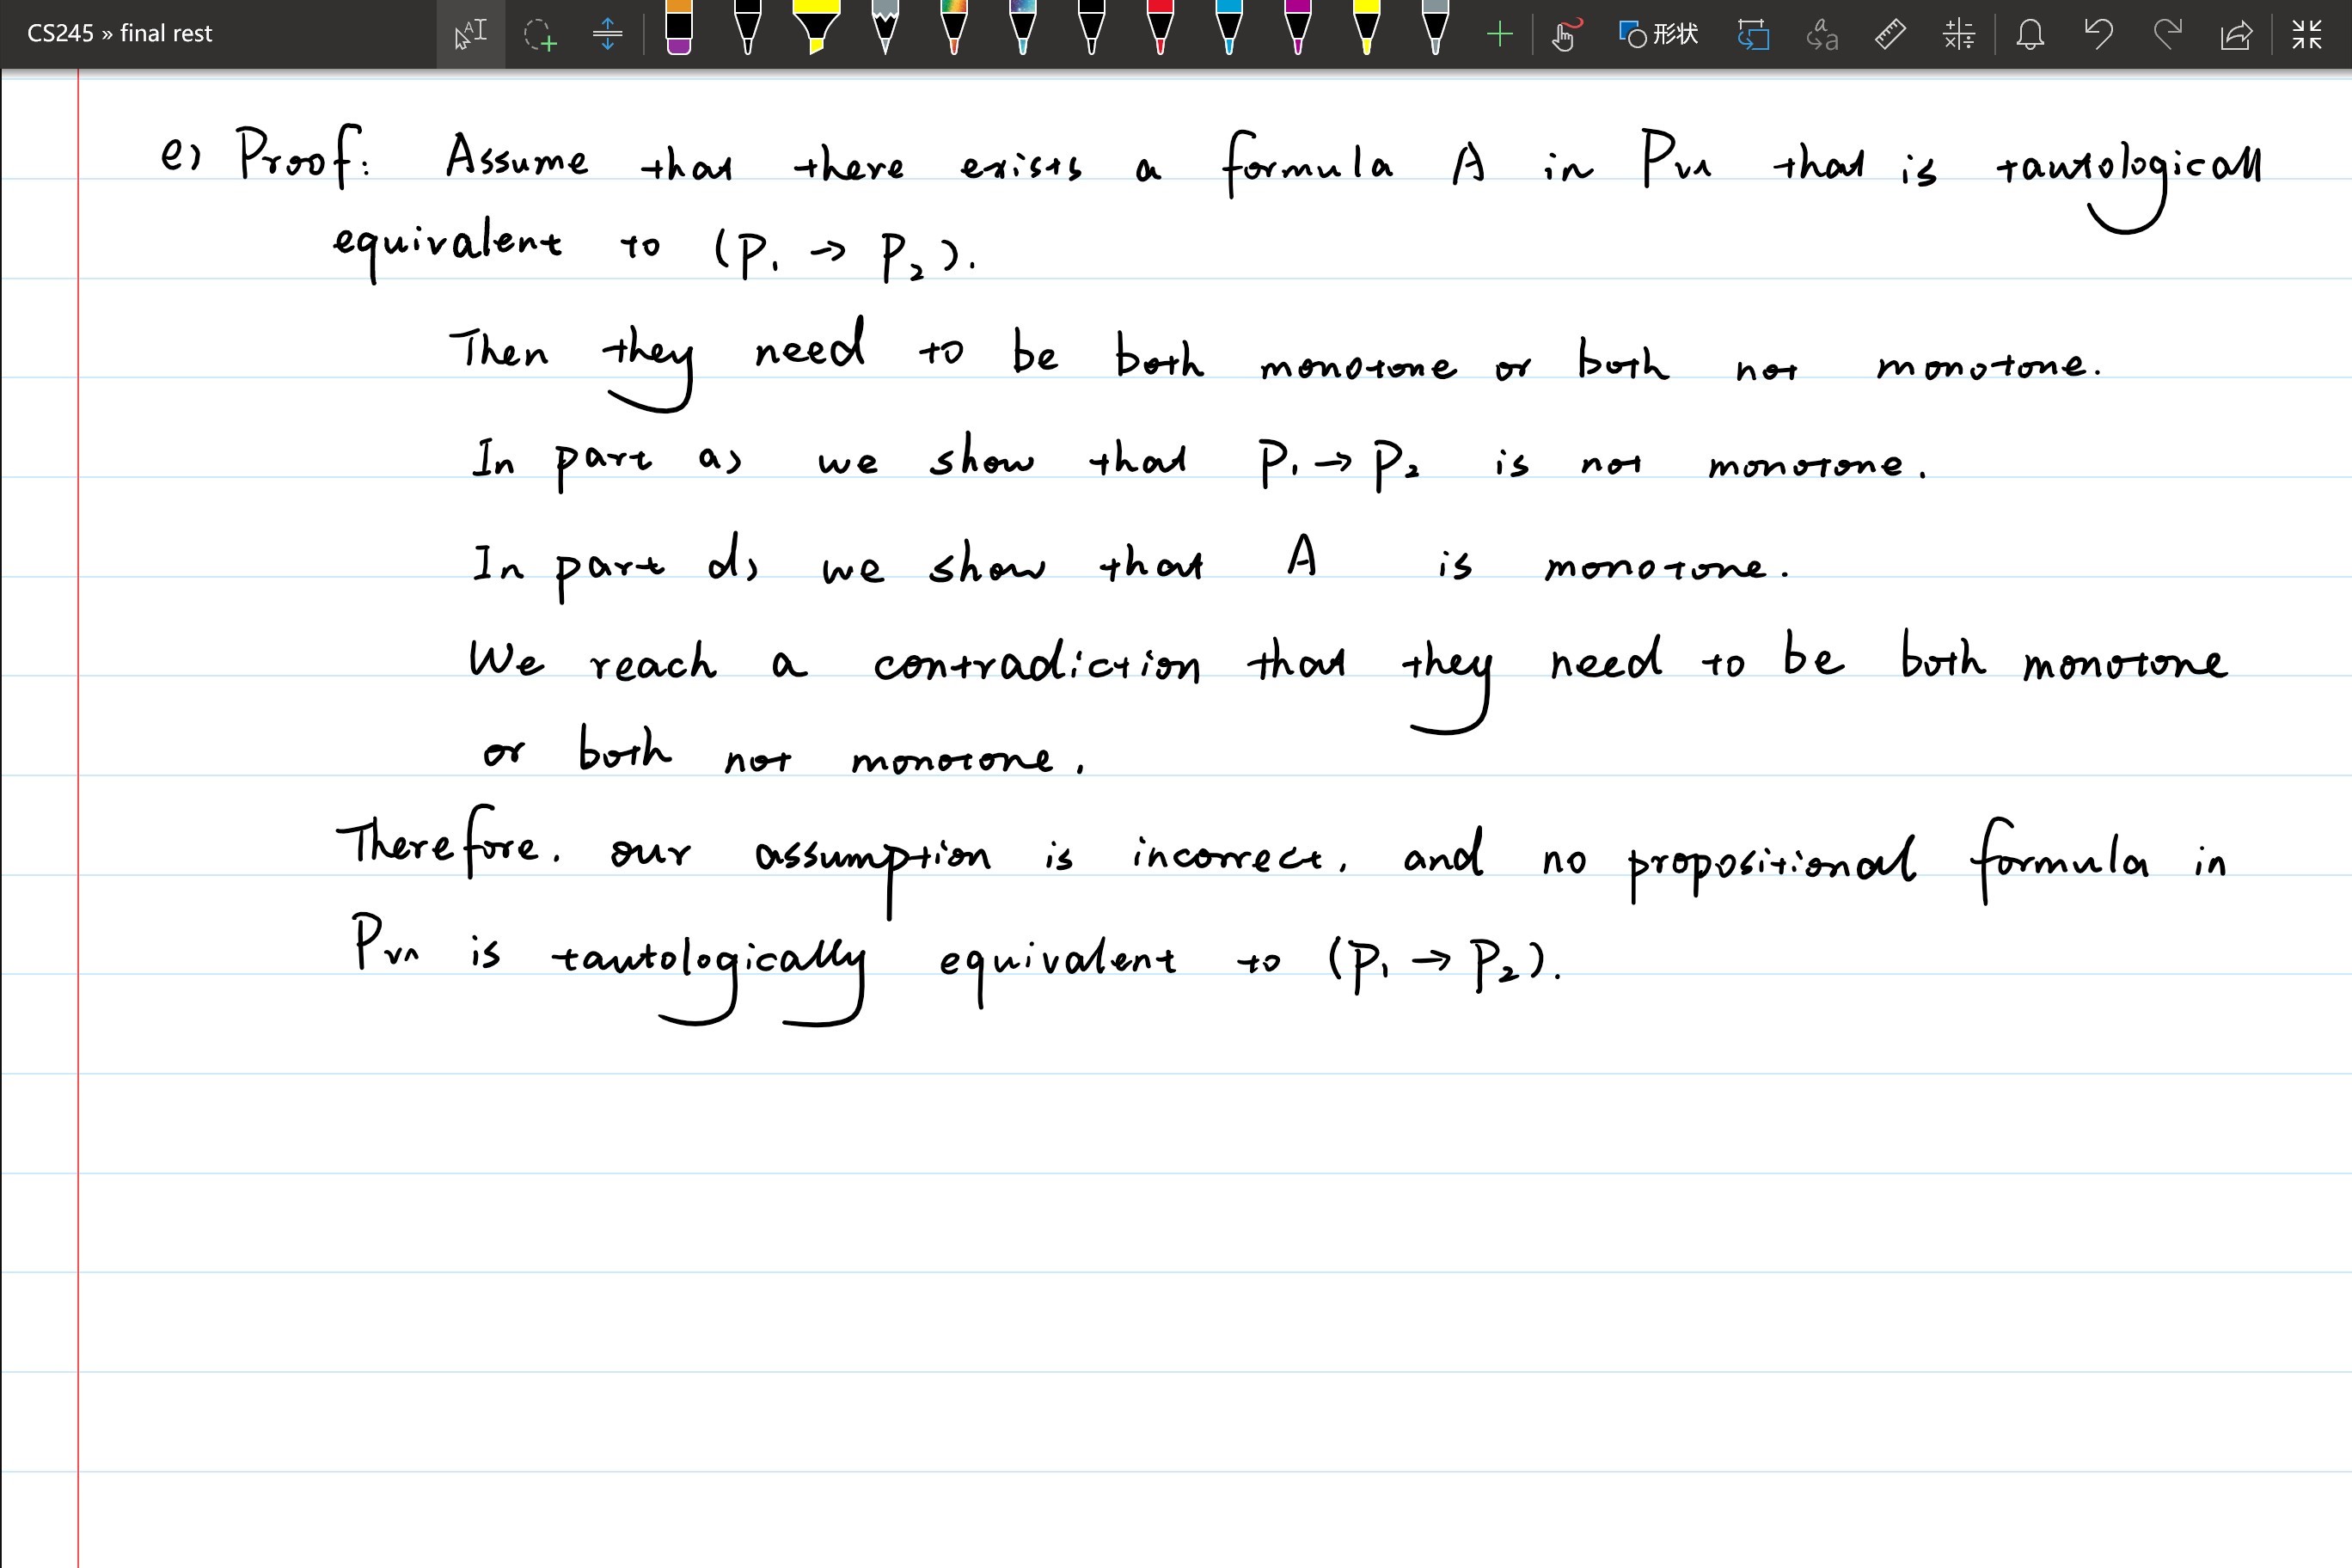 CS245 » final rest
形状
e) Proof: Assume that there exists a formula A in P∨∧ that is tautologicall
equivalent to (P₁ → P₂).
Then they need to be both monotone or both not monotone.
In part a) we show that P₁ → P₂ is not monotone.
In part d) we show that A is monotone.
We reach a contradiction that they need to be both monotone
or both not monotone.
Therefore. our assumption is incorrect, and no propositional formula in
P∨∧ is tautologically equivalent to (P₁ → P₂).